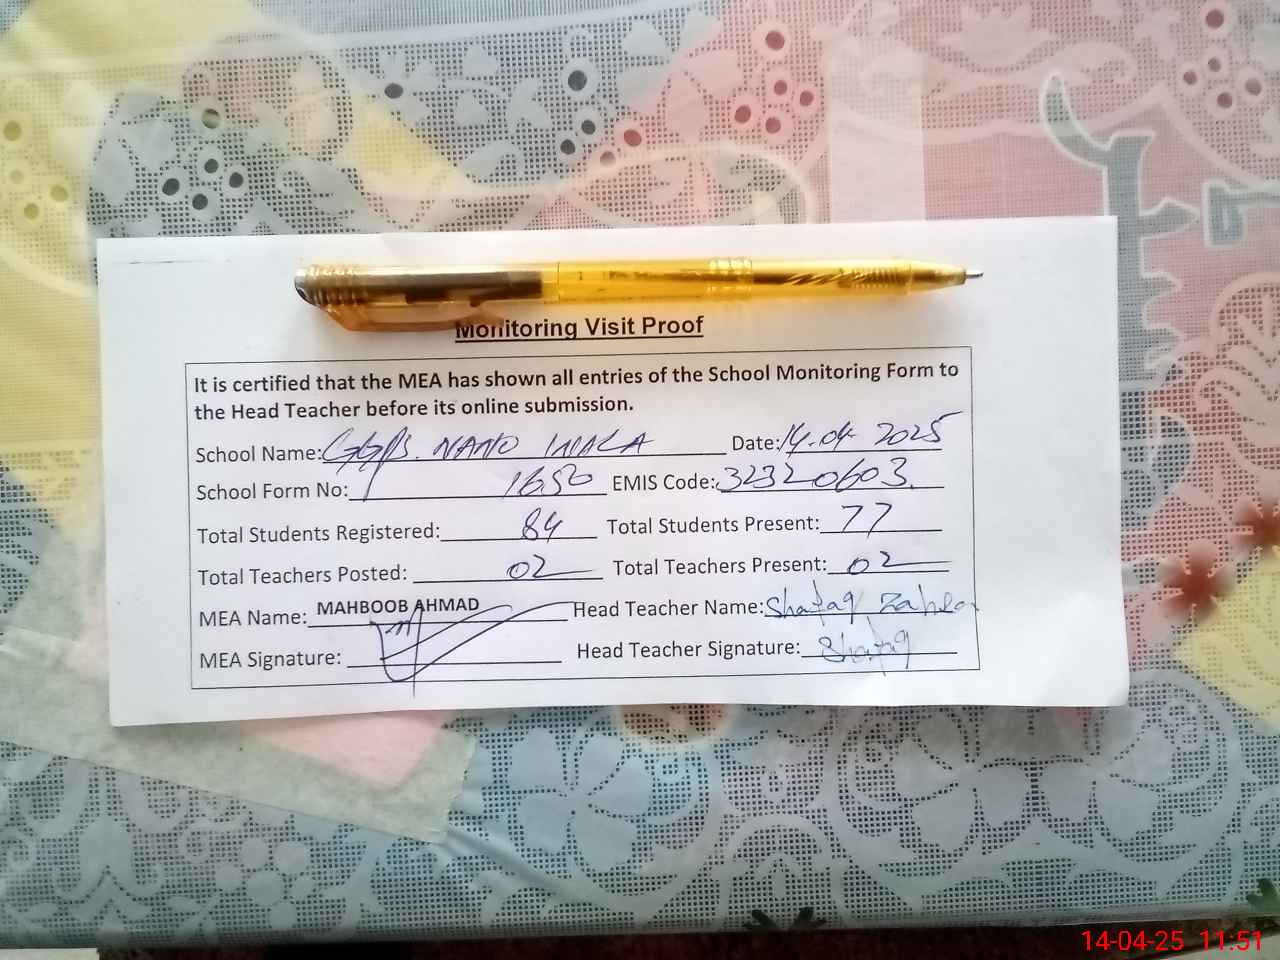 Monitoring Visit Proof
It is certified that the MEA has shown all entries of the School Monitoring Form to
the Head Teacher before its online submission.
School Name: GGPS. NANO WALA Date: 14.04 2025
School Form No: 1650 EMIS Code: 32320603.
Total Students Registered: 84 Total Students Present: 77
Total Teachers Posted: 02 Total Teachers Present: 02
MEA Name: MAHBOOB AHMAD Head Teacher Name: Shafaq Zahra
MEA Signature: Head Teacher Signature: Shafaq
14-04-25 11:51